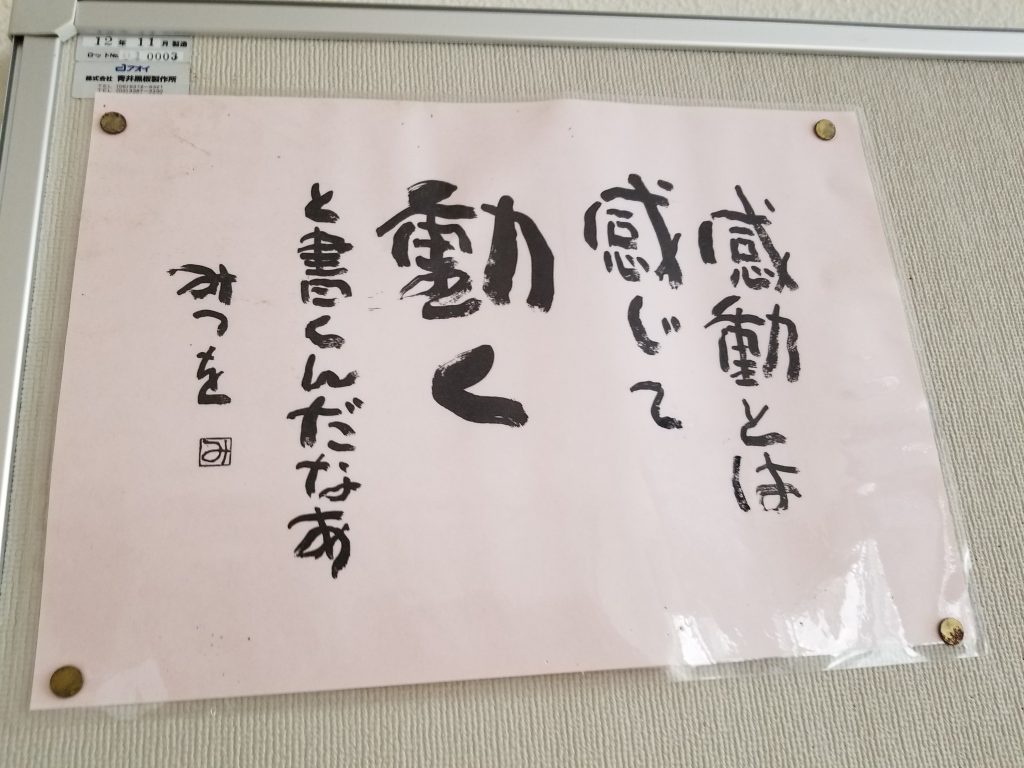 12年 11月製造
ロットNo. 0003
アオイ
株式会社 青井黒板製作所
感動とは
感じて
動く
と書くんだなあ
みつを
み